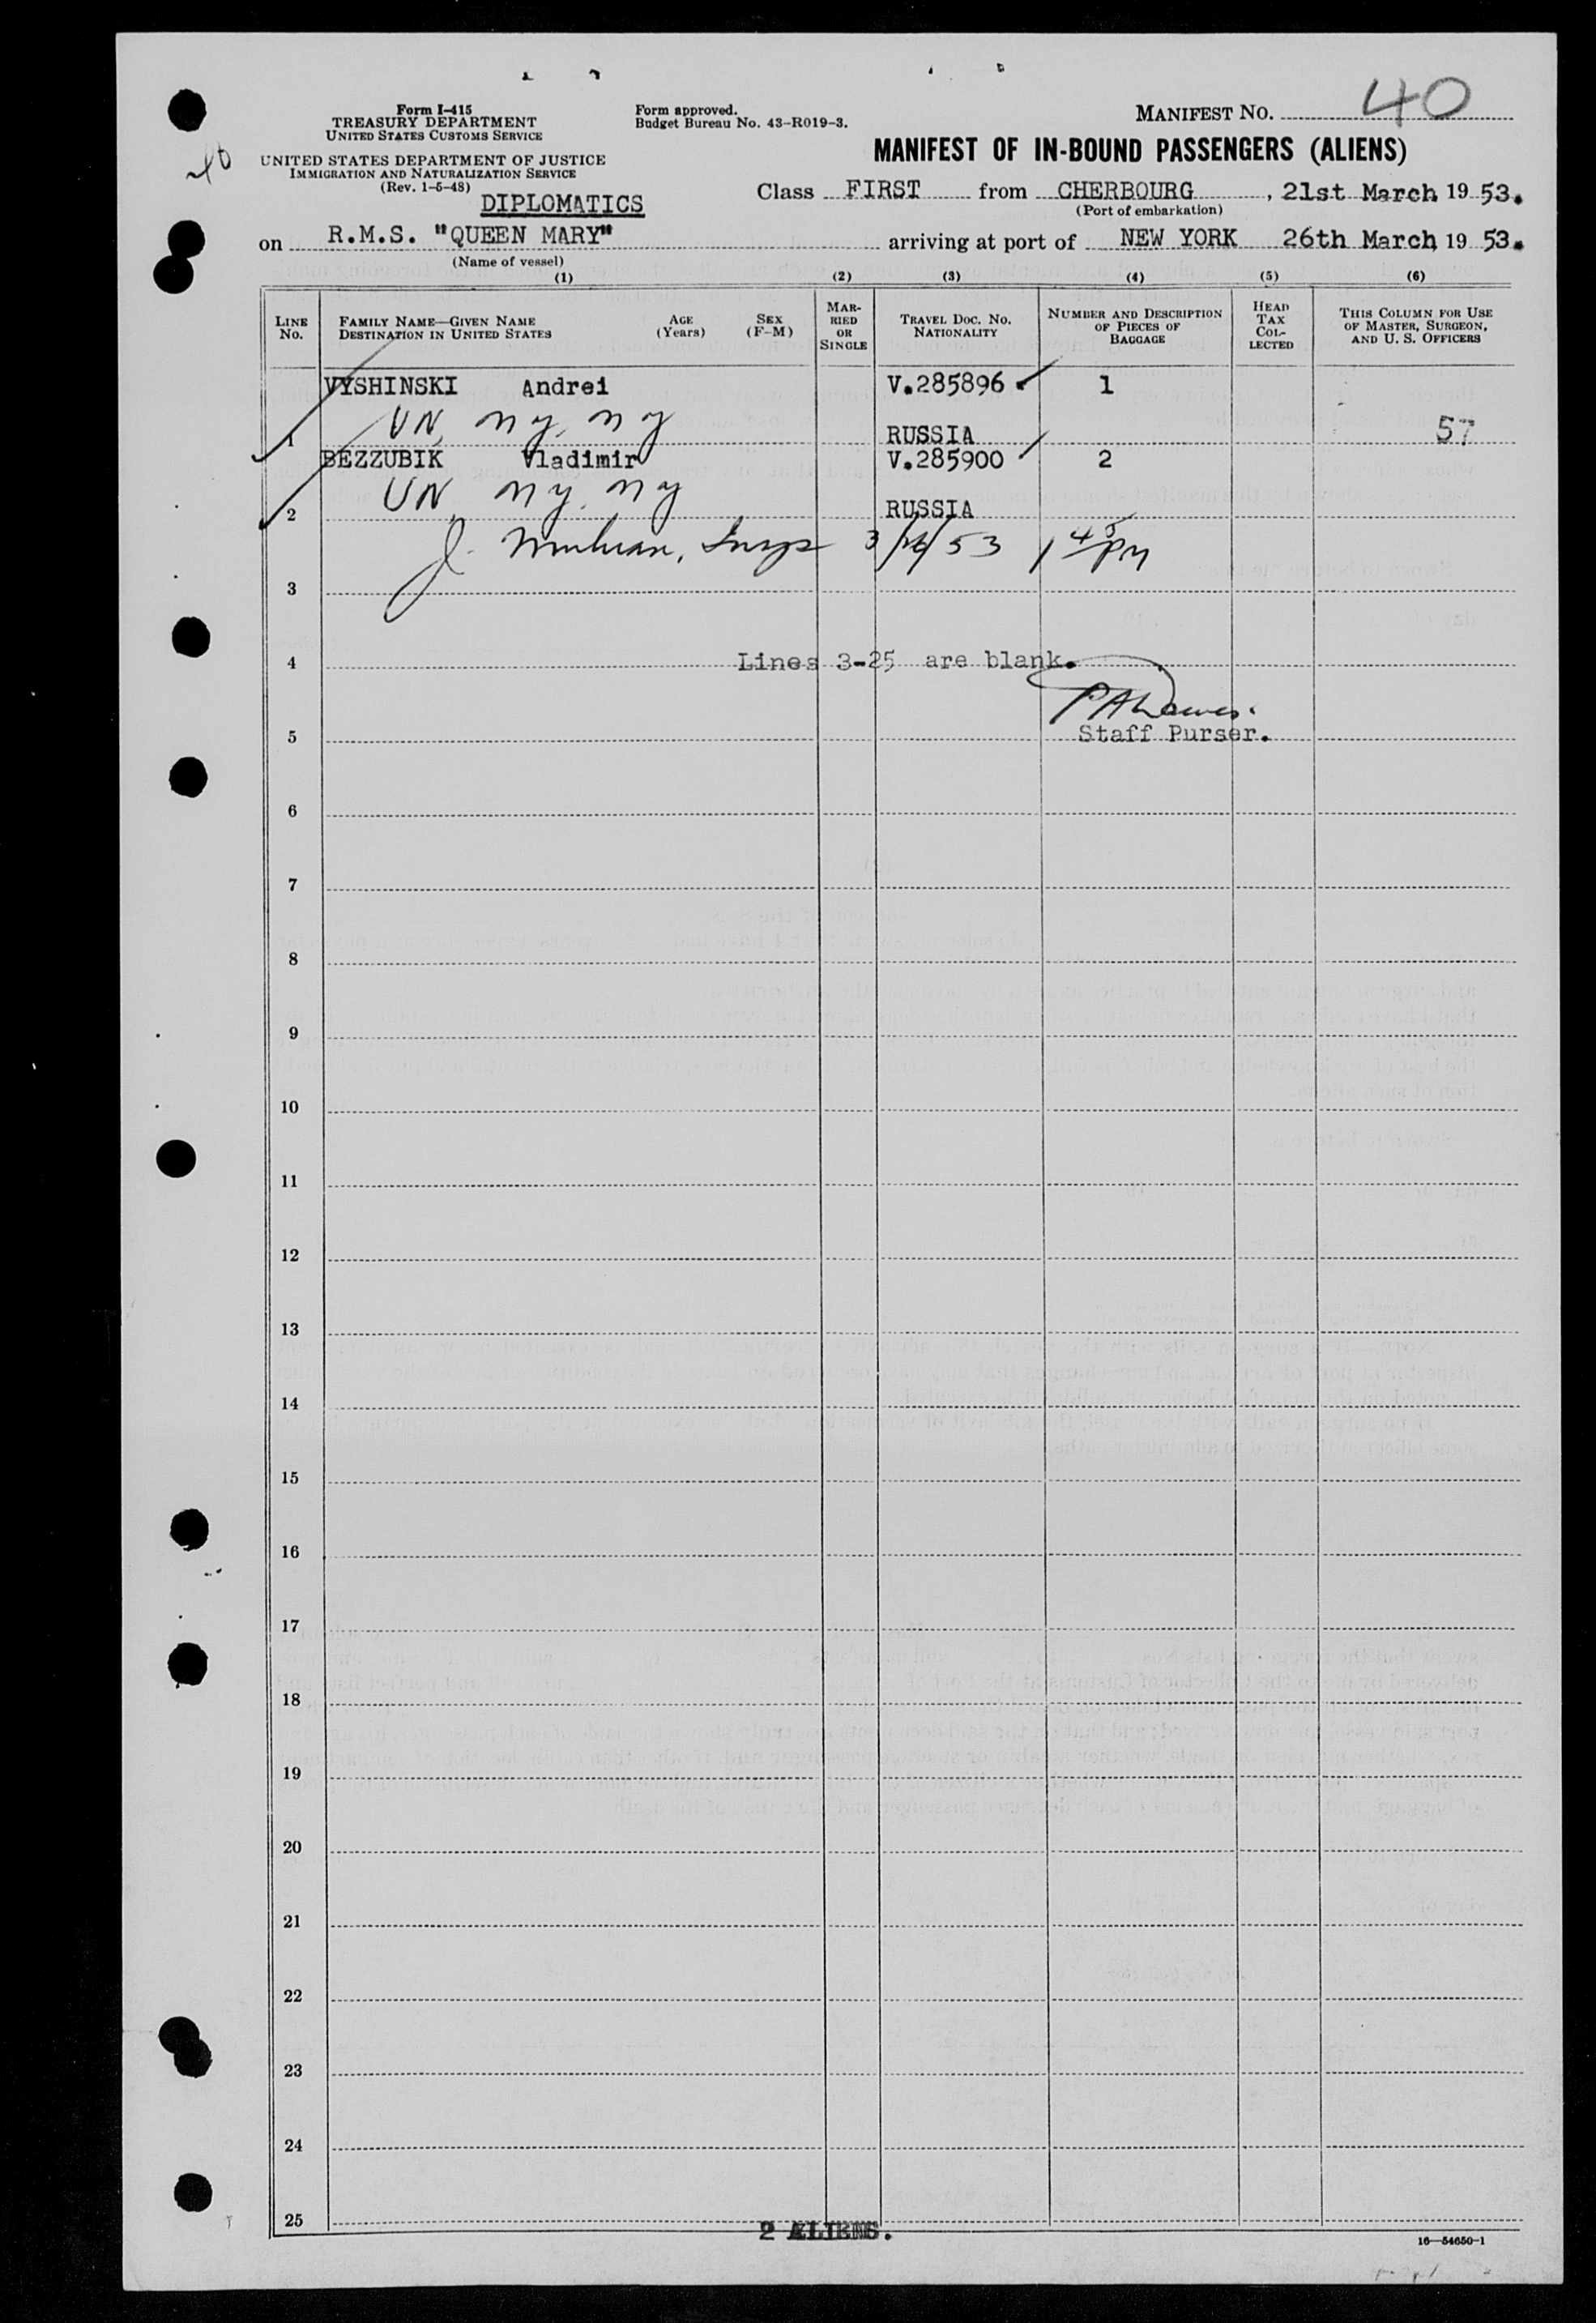 Form I-415
TREASURY DEPARTMENT
UNITED STATES CUSTOMS SERVICE
UNITED STATES DEPARTMENT OF JUSTICE
IMMIGRATION AND NATURALIZATION SERVICE
(Rev. 1-5-48)
Form approved.
Budget Bureau No. 43-R019-3.
MANIFEST NO. 40
MANIFEST OF IN-BOUND PASSENGERS (ALIENS)
40
DIPLOMATICS
Class FIRST from CHERBOURG, 21st March, 19 53.
(Port of embarkation)
on R.M.S. "QUEEN MARY" arriving at port of NEW YORK 26th March, 19 53.
(Name of vessel)
(1) (2) (3) (4) (5) (6)
LINE No. FAMILY NAME—GIVEN NAME DESTINATION IN UNITED STATES AGE (Years) SEX (F-M) MARRIED OR SINGLE TRAVEL DOC. NO. NATIONALITY NUMBER AND DESCRIPTION OF PIECES OF BAGGAGE HEAD TAX COLLECTED THIS COLUMN FOR USE OF MASTER, SURGEON, AND U. S. OFFICERS
VYSHINSKI Andrei V.285896 1
1 UN, NY, NY RUSSIA 57
BEZZUBIK Vladimir V.285900 2
2 UN, NY, NY RUSSIA
J. Insp 3/26/53 1 45 PM
3
4 Lines 3-25 are blank.
5 Staff Purser.
6
7
8
9
10
11
12
13
14
15
16
17
18
19
20
21
22
23
24
25
2 ALIENS.
16—54650-1